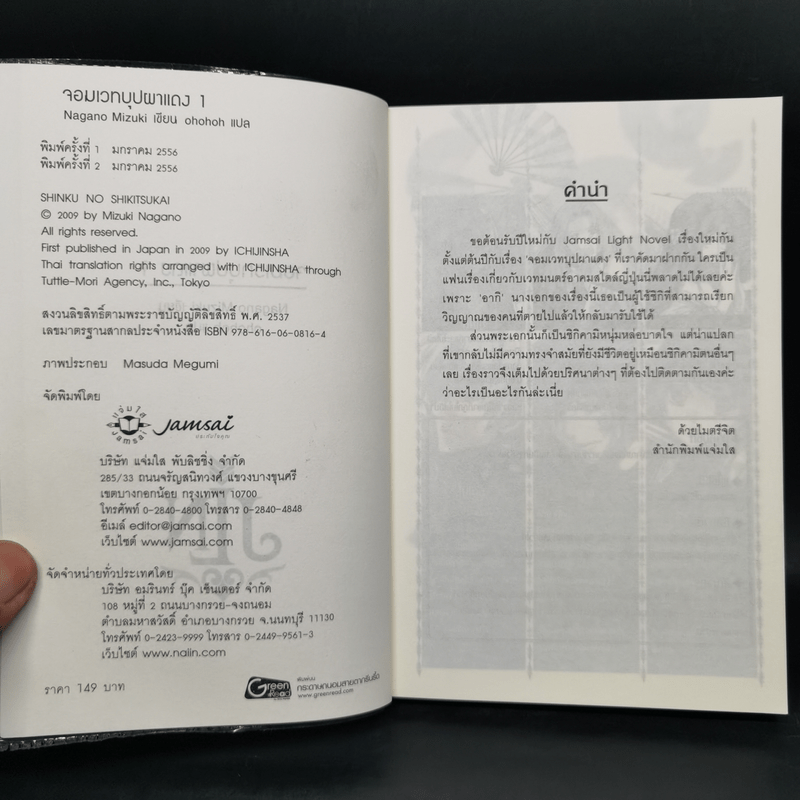 จอมเวทบุปผาแดง 1
Nagano Mizuki เขียน ohohoh แปล
พิมพ์ครั้งที่ 1 มกราคม 2556
พิมพ์ครั้งที่ 2 มกราคม 2556
SHINKU NO SHIKITSUKAI
© 2009 by Mizuki Nagano
All rights reserved.
First published in Japan in 2009 by ICHIJINSHA
Thai translation rights arranged with ICHIJINSHA through
Tuttle-Mori Agency, Inc., Tokyo
สงวนลิขสิทธิ์ตามพระราชบัญญัติลิขสิทธิ์ พ.ศ. 2537
เลขมาตรฐานสากลประจำหนังสือ ISBN 978-616-06-0816-4
ภาพประกอบ Masuda Megumi
จัดพิมพ์โดย
แจ่มใส
Jamsai
Jamsai
บริษัท แจ่มใส พับลิชชิ่ง จำกัด
285/33 ถนนจรัญสนิทวงศ์ แขวงบางขุนศรี
เขตบางกอกน้อย กรุงเทพฯ 10700
โทรศัพท์ 0-2840-4800 โทรสาร 0-2840-4848
อีเมล์ editor@jamsai.com
เว็บไซต์ www.jamsai.com
จัดจำหน่ายทั่วประเทศโดย
บริษัท อมรินทร์ บุ๊ค เซ็นเตอร์ จำกัด
108 หมู่ที่ 2 ถนนบางกรวย-จงถนอม
ตำบลมหาสวัสดิ์ อำเภอบางกรวย จ.นนทบุรี 11130
โทรศัพท์ 0-2423-9999 โทรสาร 0-2449-9561-3
เว็บไซต์ www.naiin.com
ราคา 149 บาท
Green Read
พิมพ์บน
กระดาษถนอมสายตากรีนรี้ด
www.greenread.com
คำนำ
ขอต้อนรับปีใหม่กับ Jamsai Light Novel เรื่องใหม่กัน
ตั้งแต่ต้นปีกับเรื่อง 'จอมเวทบุปผาแดง' ที่เราคัดมาฝากกัน ใครเป็น
แฟนเรื่องเกี่ยวกับเวทมนตร์อาคมสไตล์ญี่ปุ่นนี่พลาดไม่ได้เลยค่ะ
เพราะ 'อากิ' นางเอกของเรื่องนี้เธอเป็นผู้ใช้ชิกิที่สามารถเรียก
วิญญาณของคนที่ตายไปแล้วให้กลับมารับใช้ได้
ส่วนพระเอกนั้นก็เป็นชิกิคามิหนุ่มหล่อบาดใจ แต่น่าแปลก
ที่เขากลับไม่มีความทรงจำสมัยที่ยังมีชีวิตอยู่เหมือนชิกิคามิตนอื่นๆ
เลย เรื่องราวจึงเต็มไปด้วยปริศนาต่างๆ ที่ต้องไปติดตามกันเองค่ะ
ว่าอะไรเป็นอะไรกันล่ะเนี่ย
ด้วยไมตรีจิต
สำนักพิมพ์แจ่มใส